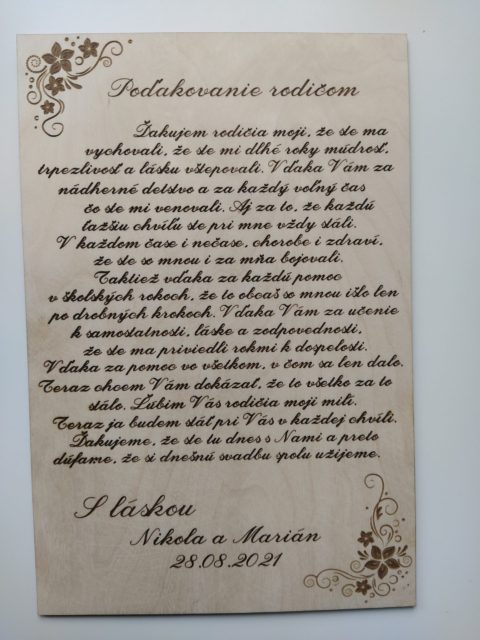 Poďakovanie rodičom
Ďakujem rodičia moji, že ste ma
vychovali, že ste mi dlhé roky múdrosť,
trpezlivosť a lásku všlepovali. Vďaka Vám za
nádherné detstvo a za každý voľný čas
čo ste mi venovali. Aj za to, že každú
ťažšiu chvíľu ste pri mne vždy stáli.
V každom čase i nečase, chorobe i zdraví,
že ste so mnou i za mňa bojovali.
Taktiež vďaka za každú pomoc
v školských rokoch, že to občaš so mnou išlo len
po drobných krokoch. Vďaka Vám za učenie
k samostatnosti, láske a zodpovednosti,
že ste ma priviedli rokmi k dospelosti.
Vďaka za pomoc vo všetkom, v čom sa len dalo.
Teraz chcem Vám dokázať, že to všetko za to
stálo. Ľúbim Vás rodičia moji milí.
Teraz ja budem stáť pri Vás v každej chvíli.
Ďakujeme, že ste tu dnes s Nami a preto
dúfame, že si dnešnú svadbu spolu užijeme.
S láskou
Nikola a Marián
28.08.2021